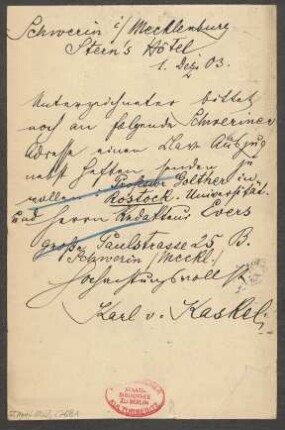 Schwerin i/Mecklenburg
Stern's Hôtel
1. Dez. 03.
Unterzeichneter bittet
noch an folgende Schweriner
Adresse einen Clav. Auszug
nebst Heften senden zu
wollen: Professor Golther in
Rostock. Universität.
und Herrn Redakteur Evers
große Paulstrasse 25, B.
Schwerin /Meckl.
Hochachtungsvollst
Karl v. Kaskel